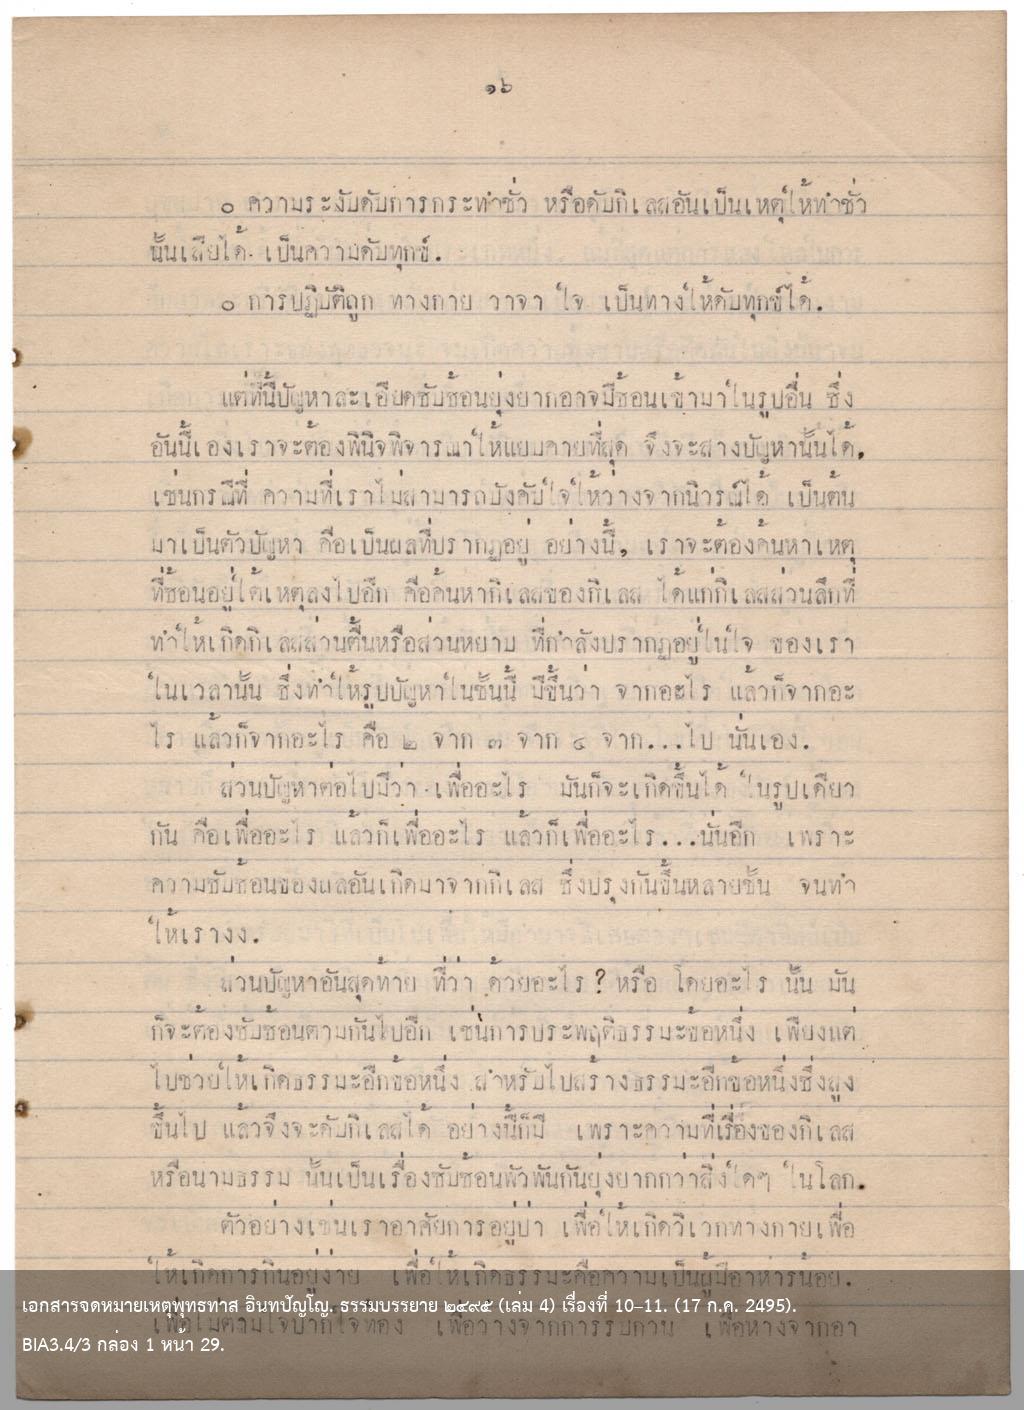 ๑๖
๐ ความระงับดับการกระทำชั่ว หรือดับกิเลสอันเป็นเหตุให้ทำชั่ว
นั้นเสียได้ เป็นความดับทุกข์.
๐ การปฏิบัติถูก ทางกาย วาจา ใจ เป็นทางให้ดับทุกข์ได้.
แต่ทีนี้ปัญหาละเอียดซับซ้อนยุ่งยากอาจมีซ้อนเข้ามาในรูปอื่น ซึ่ง
อันนี้เองเราจะต้องพินิจพิจารณาให้แยบคายที่สุด จึงจะสางปัญหานั้นได้,
เช่นกรณีที่ ความที่เราไม่สามารถบังคับใจให้ว่างจากนิวรณ์ได้ เป็นต้น
มาเป็นตัวปัญหา คือเป็นผลที่ปรากฏอยู่ อย่างนี้, เราจะต้องค้นหาเหตุ
ที่ซ้อนอยู่ใต้เหตุลงไปอีก คือค้นหากิเลสของกิเลส ได้แก่กิเลสส่วนลึกที่
ทำให้เกิดกิเลสส่วนตื้นหรือส่วนหยาบ ที่กำลังปรากฏอยู่ในใจ ของเรา
ในเวลานั้น ซึ่งทำให้รูปปัญหาในชั้นนี้ มีขึ้นว่า จากอะไร แล้วก็จากอะ
ไร แล้วก็จากอะไร คือ ๒ จาก ๓ จาก ๔ จาก...ไป นั่นเอง.
ส่วนปัญหาต่อไปมีว่า เพื่ออะไร มันก็จะเกิดขึ้นได้ ในรูปเดียว
กัน คือเพื่ออะไร แล้วก็เพื่ออะไร แล้วก็เพื่ออะไร...นั่นอีก เพราะ
ความซับซ้อนของผลอันเกิดมาจากกิเลส ซึ่งปรุงกันขึ้นหลายชั้น จนทำ
ให้เรางง.
ส่วนปัญหาอันสุดท้าย ที่ว่า ด้วยอะไร ? หรือ โดยอะไร นั้น มัน
ก็จะต้องซับซ้อนตามกันไปอีก เช่นการประพฤติธรรมะข้อหนึ่ง เพียงแต่
ไปช่วยให้เกิดธรรมะอีกข้อหนึ่ง สำหรับไปสร้างธรรมะอีกข้อหนึ่งซึ่งสูง
ขึ้นไป แล้วจึงจะดับกิเลสได้ อย่างนี้ก็มี เพราะความที่เรื่องของกิเลส
หรือนามธรรม นั้นเป็นเรื่องซับซ้อนพัวพันกันยุ่งยากกว่าสิ่งใดๆ ในโลก.
ตัวอย่างเช่นเราอาศัยการอยู่ป่า เพื่อให้เกิดวิเวกทางกายเพื่อ
ให้เกิดการกินอยู่ง่าย เพื่อให้เกิดธรรมะคือความเป็นผู้มีอาหารน้อย.
เพื่อไม่ตามใจปากใจท้อง เพื่อว่างจากการรบกวน เพื่อห่างจากอา
เอกสารจดหมายเหตุพุทธทาส อินทปัญโญ. ธรรมบรรยาย ๒๔๙๕ (เล่ม 4) เรื่องที่ 10–11. (17 ก.ค. 2495).
BIA3.4/3 กล่อง 1 หน้า 29.